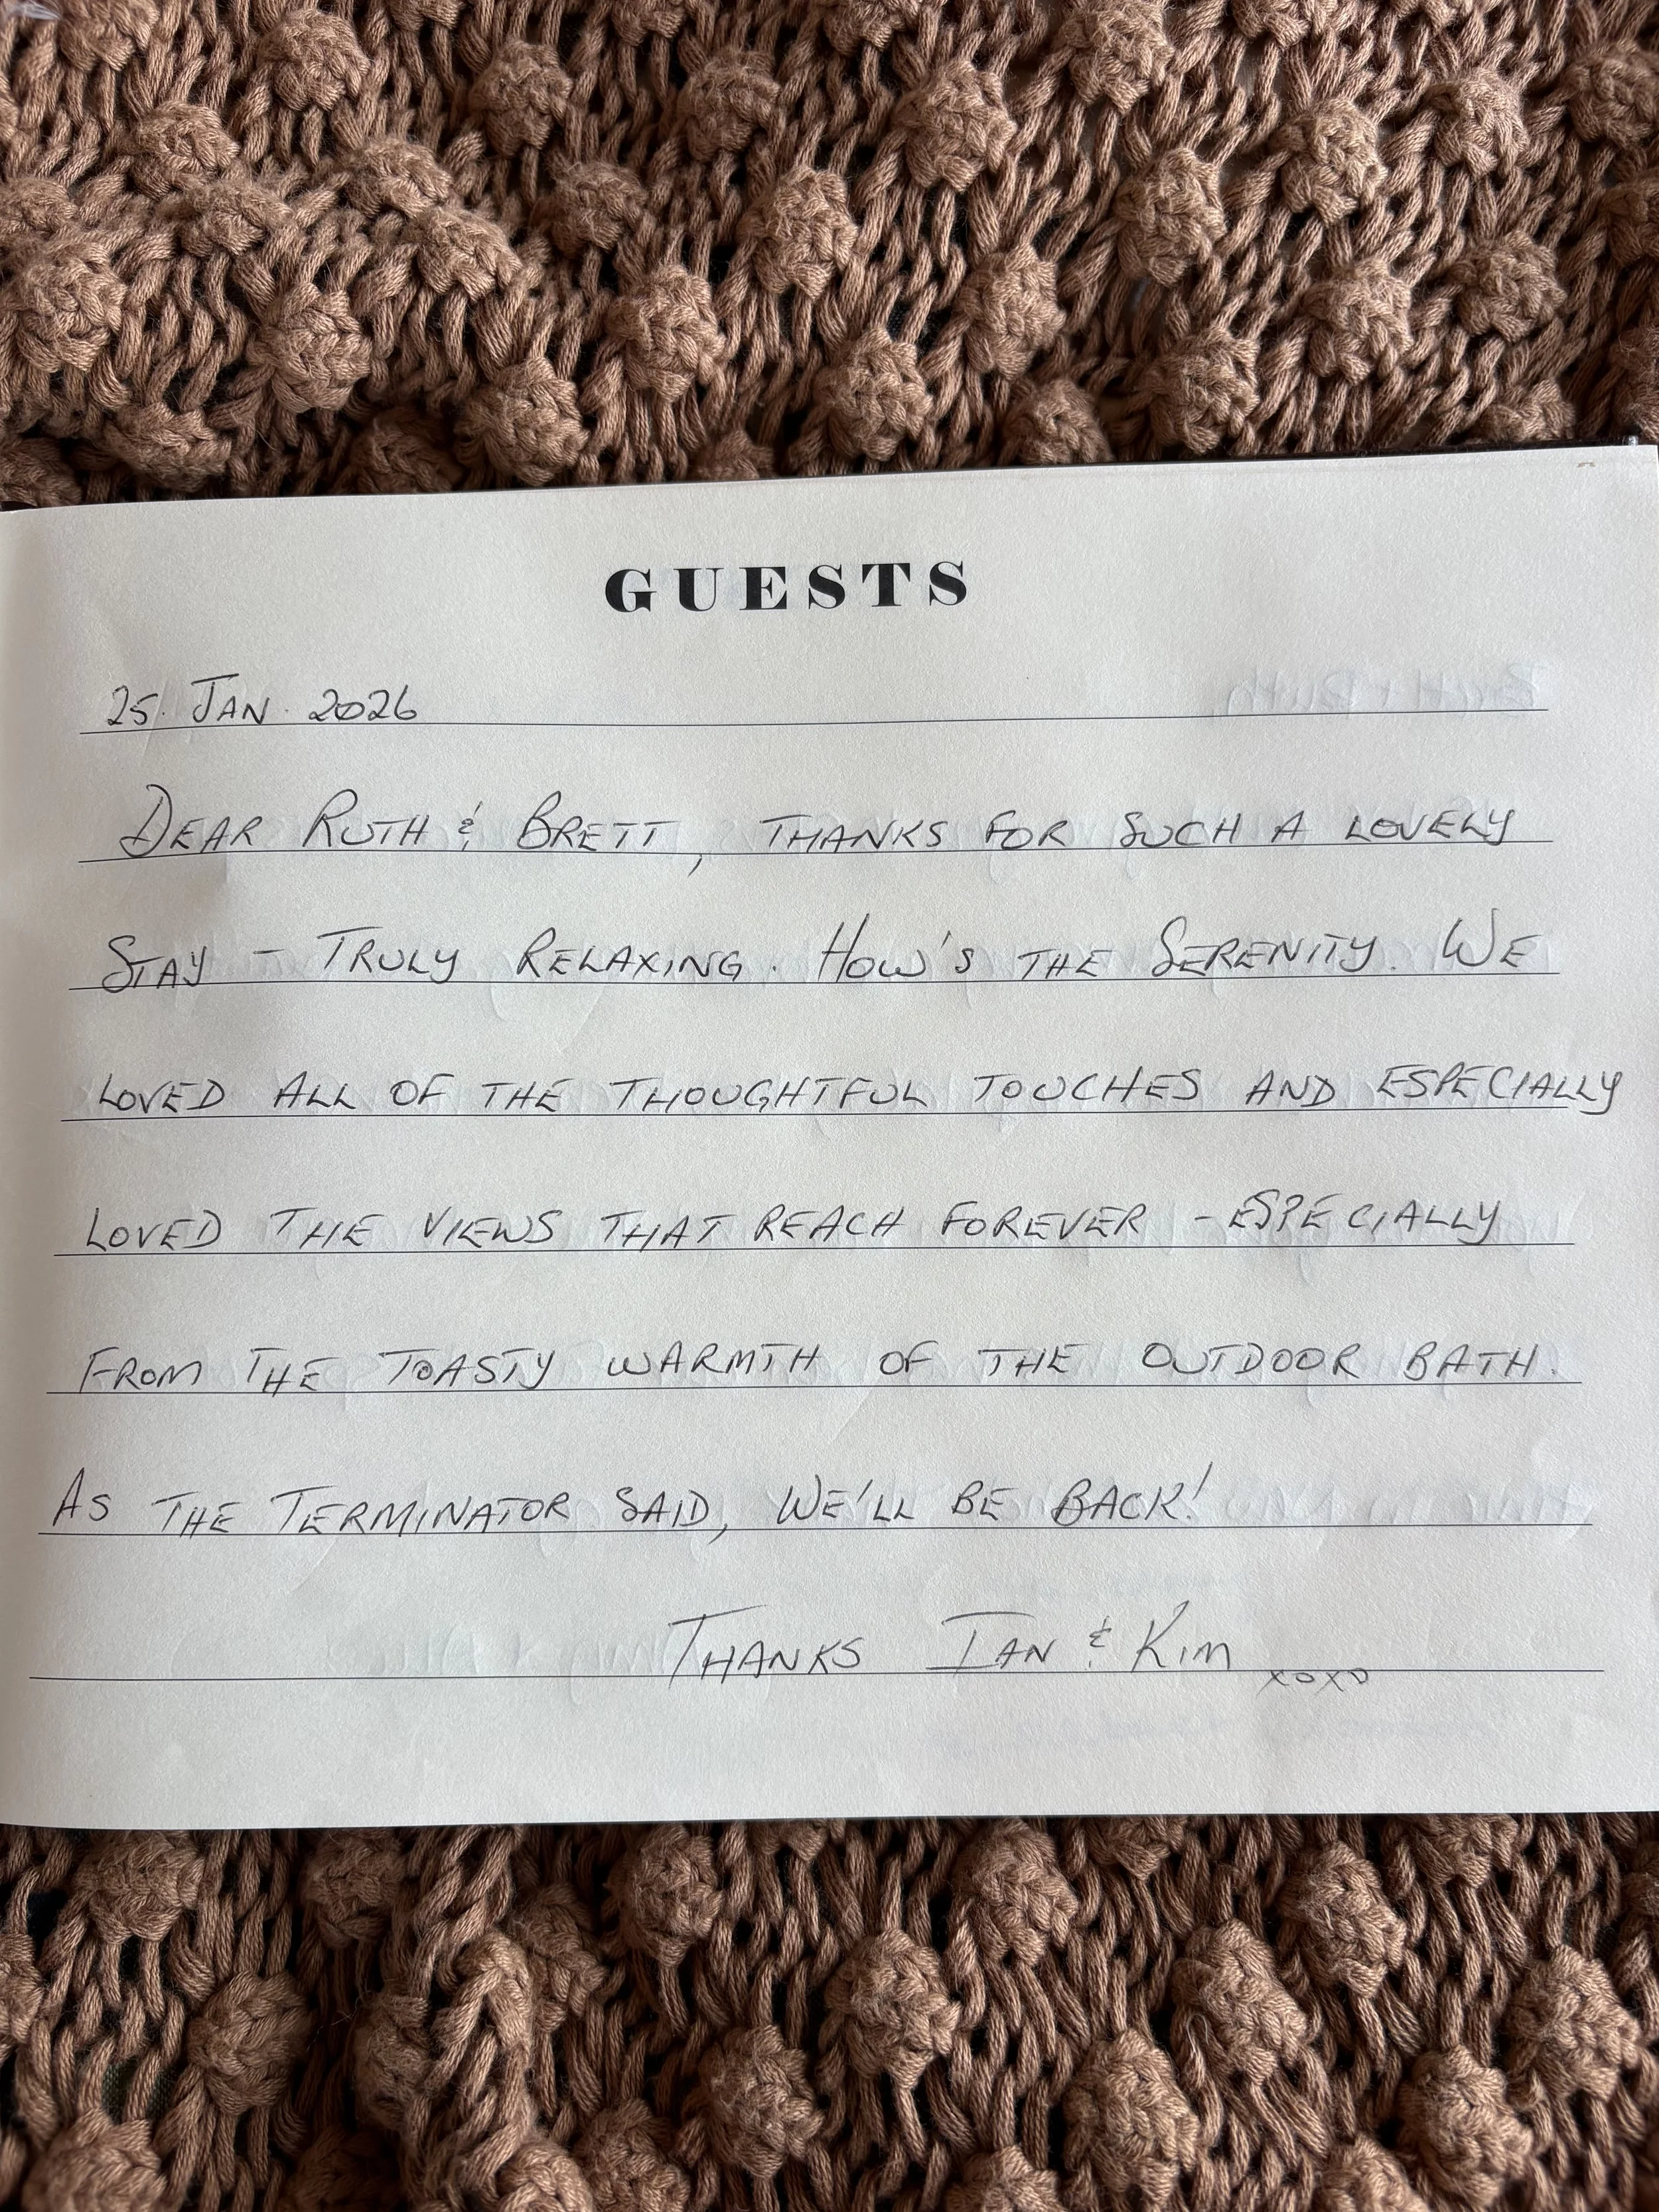 GUESTS
25. JAN. 2026
DEAR RUTH & BRETT, THANKS FOR SUCH A LOVELY
STAY - TRULY RELAXING. HOW'S THE SERENITY. WE
LOVED ALL OF THE THOUGHTFUL TOUCHES AND ESPECIALLY
LOVED THE VIEWS THAT REACH FOREVER - ESPECIALLY
FROM THE TOASTY WARMTH OF THE OUTDOOR BATH.
AS THE TERMINATOR SAID, WE'LL BE BACK!
THANKS IAN & KIM
XOXO